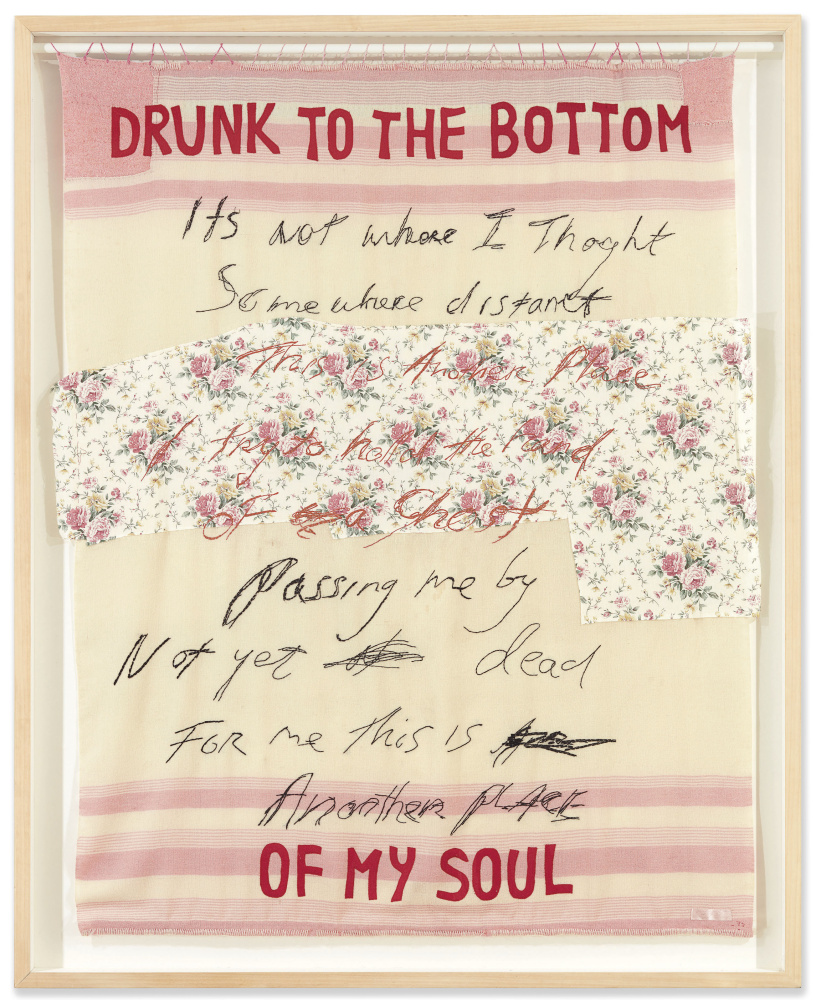 DRUNK TO THE BOTTOM
Its not where I Thoght
Somewhere distant
This is Another Place
I try to hold the hand
of a Ghost
Passing me by
Not yet dead
FOR me this is
Anonther PLACE
OF MY SOUL